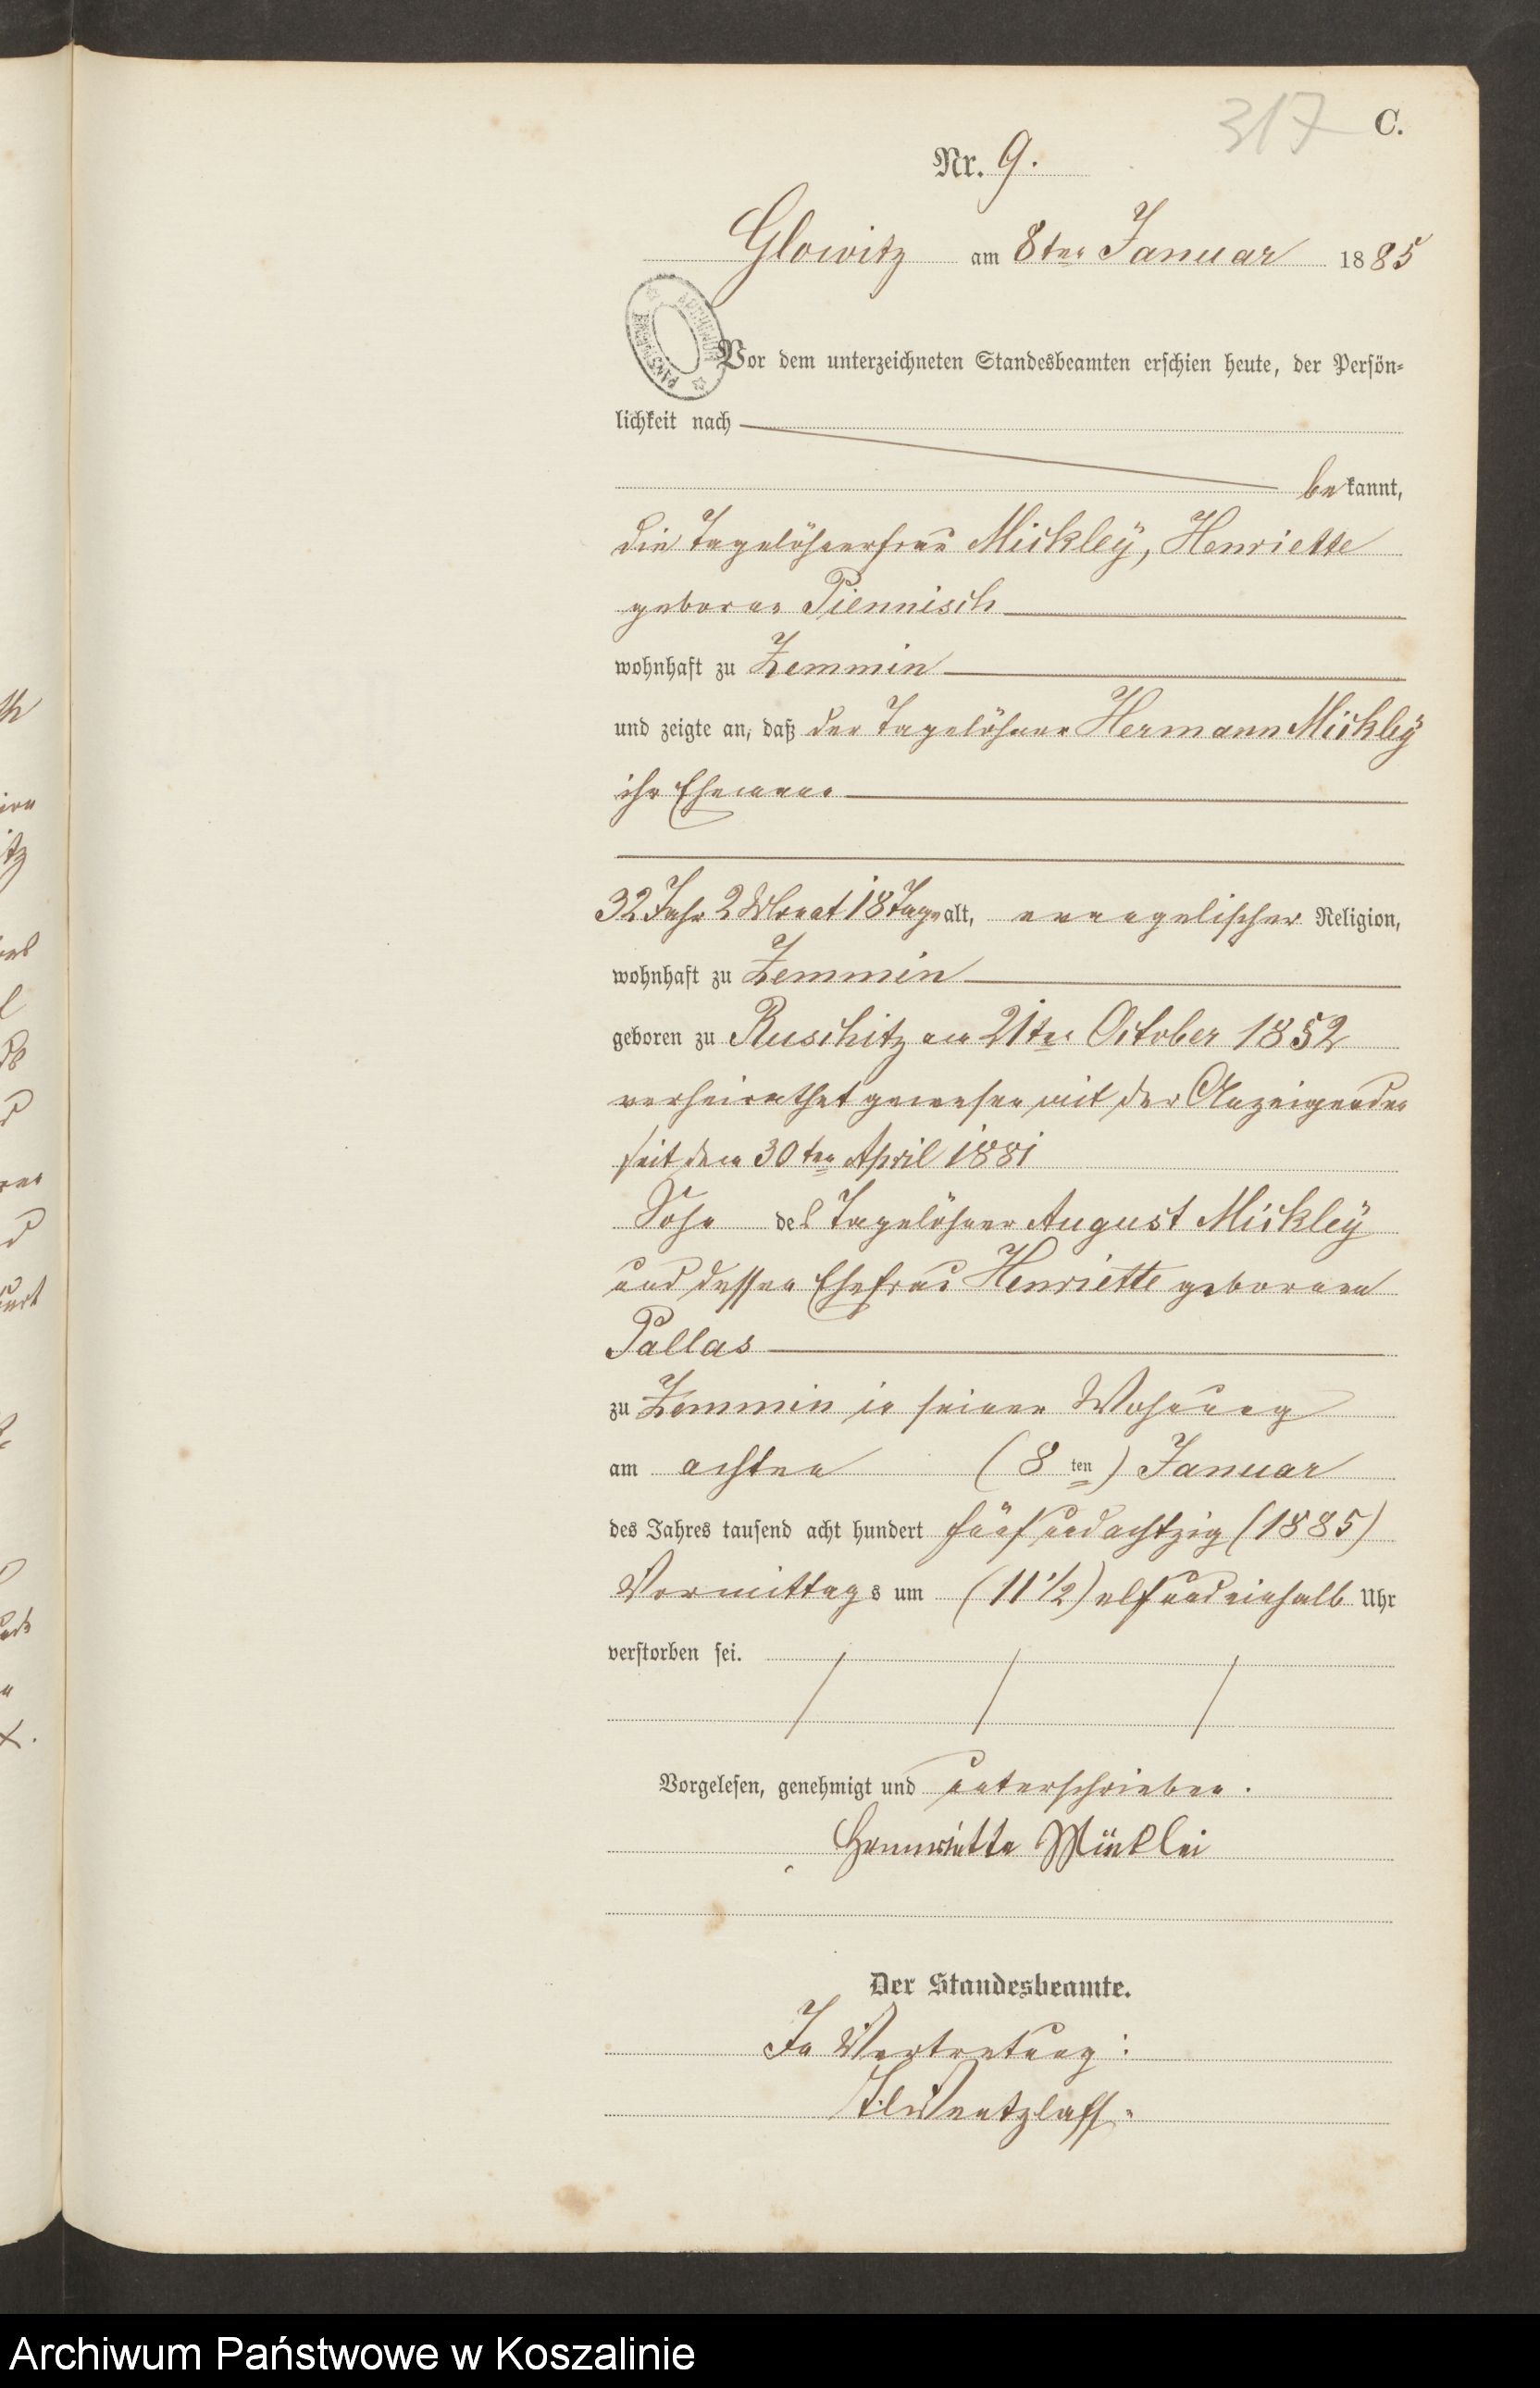 317 C.
Nr. 9.
Glowitz am 8ten Januar 1885
Vor dem unterzeichneten Standesbeamten erschien heute, der Persön-
lichkeit nach
bekannt,
die Tagelöhnerfrau Mickleÿ, Henriette
geborne Piennisch
wohnhaft zu Zemmin
und zeigte an, daß der Tagelöhner Hermann Mickleÿ
ihr Ehemann
32 Jahr 2 Monat 18 Tage alt, evangelischer Religion,
wohnhaft zu Zemmin
geboren zu Ruschitz am 21ten October 1852
verheirathet gewesen mit der Anzeigenden
seit dem 30ten April 1881
Sohn des Tagelöhner August Mickleÿ
und dessen Ehefrau Henriette gebornen
Pallas
zu Zemmin in seiner Wohnung
am achten (8ten) Januar
des Jahres tausend acht hundert fünfundachtzig (1885)
Vormittags um (11 1/2) elfundeinhalb Uhr
verstorben sei.
Vorgelesen, genehmigt und unterschrieben.
Hennriette Müklei
Der Standesbeamte.
In Vertretung:
Wentzlaff.
ith
itz
Archiwum Państwowe w Koszalinie